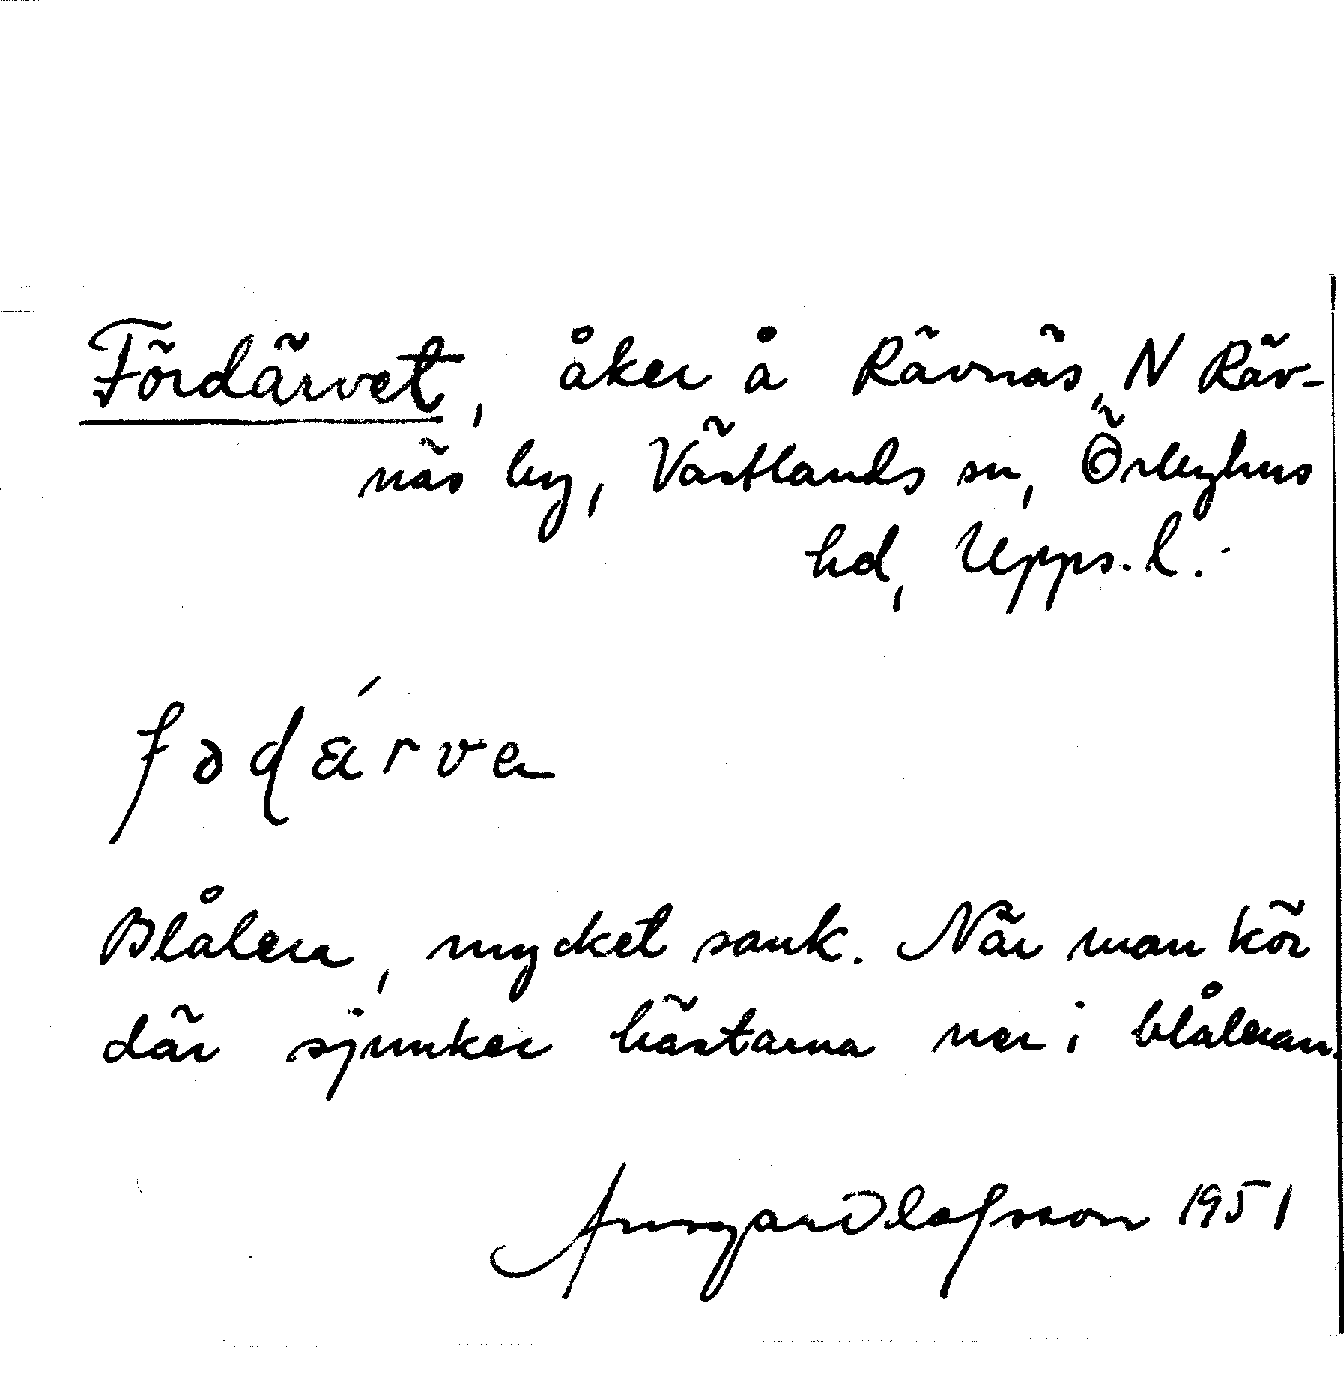 Fördärvet, åker å Rävnäs, N Räv-
näs by, Västlands sn, Örbyhus
hd, Upps. l.
fədä́rva
Blålera, mycket sank. När man kör
där sjunker hästarna ner i blåleran.
Ansgar Olofsson 1951